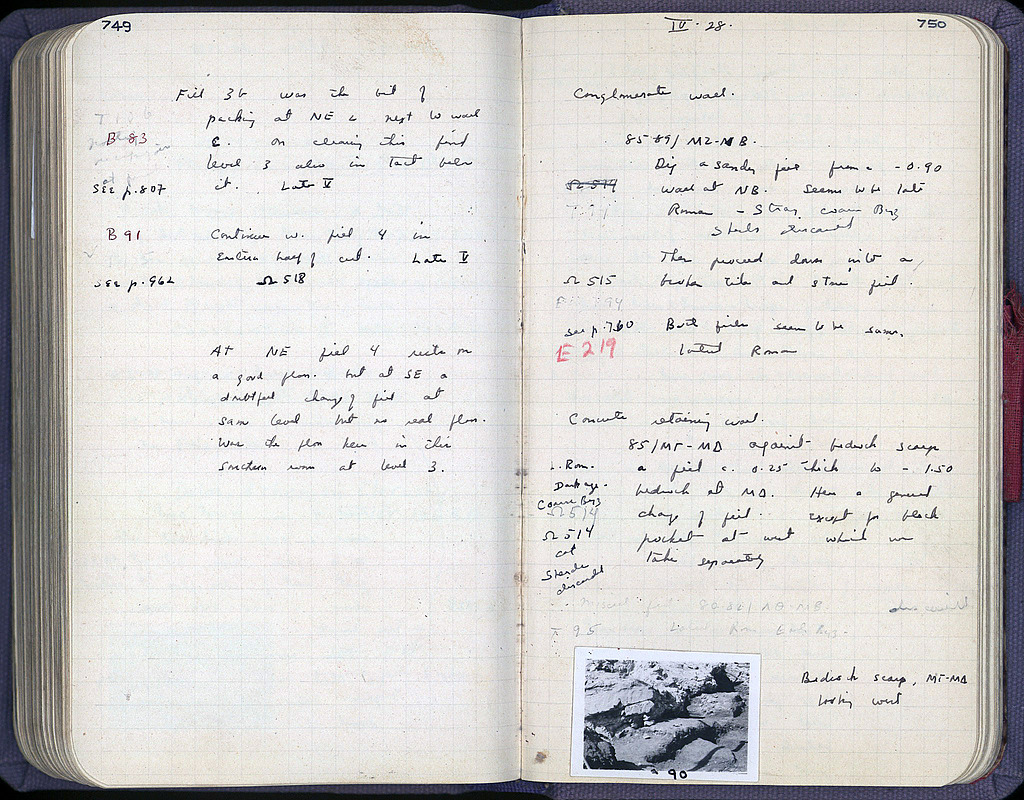 749
Fill 3b was the bit of
packing at NE c next to wall
B 83 c. on cleaning this find
level 3 also in tact below
See p. 807 it. Late V
B 91 Continue w. fill 4 in
Eastern half of cut. Late V
See p. 962 Ω 518
At NE fill 4 rests on
a good floor. but at SE a
doubtful change of fill at
same level but no real floor.
Was the floor here in this
Southern room at level 3.
IV · 28. 750
Conglomerate wall.
85-89/ MZ-NB.
Dig a sandy fill from c -0.90
Ω 514 wall at NB. Seems to be late
Roman - Stray coarse Byz
Sherds discarded
Then proceed down into a
Ω 515 broken tile and stone fill.
See p. 760 Both fills seem to be same.
E 219 Latest Roman
Concrete retaining wall.
85/MT-MΔ against bedrock scarp
L. Rom. a fill c. 0.25 thick to - 1.50
Dark age. bedrock at MΔ. Here a general
Coarse Byz
Ω 514 change of fill. Except for black
Ω 514 pocket at west which we
cat take separately
Sherds
discarded
80-82/ MΘ-MB. discarded
95 Latest Rom Early Byz.
Bedrock scarp, MT-MΔ
looking west
90